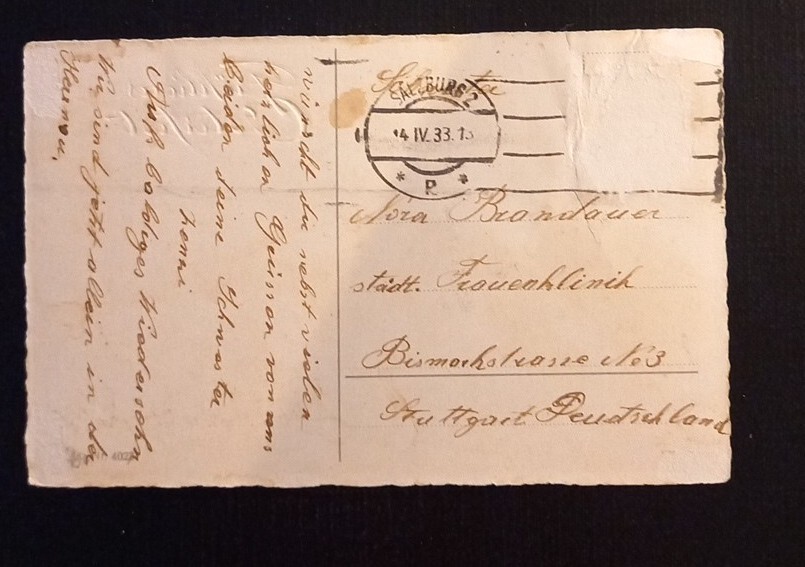 wünscht dir nebst vielen
herzlichen Grüssen von uns
beiden deine Schwester
Auf baldiges Wiedersehn
Wir sind jetzt allein in der
SALZBURG 2
IV. 33
Nora Brandauer
städt. Frauenklinik
Bismarkstrasse No 3
Stuttgart Deutschland